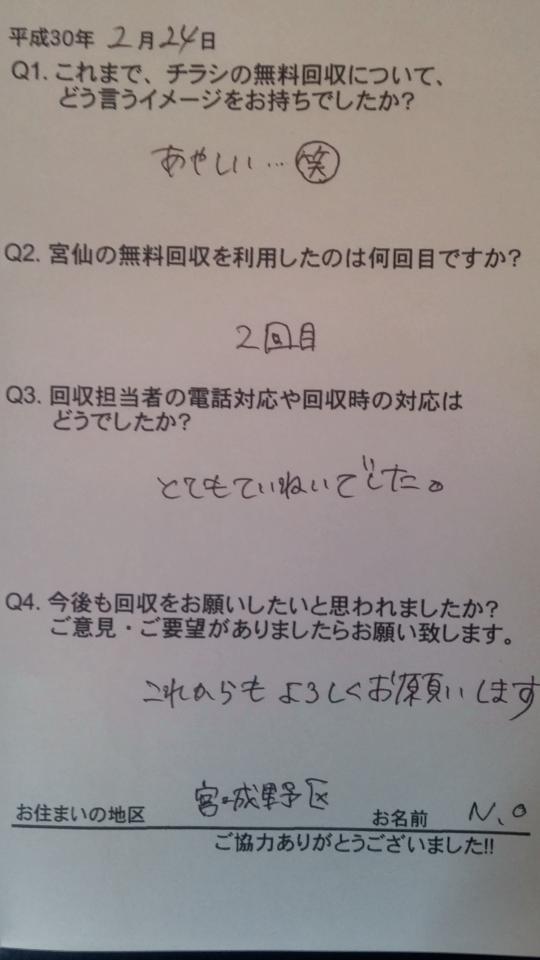 平成30年 2月24日
Q1. これまで、チラシの無料回収について、
どう言うイメージをお持ちでしたか?
あやしい…㊗笑
Q2. 宮仙の無料回収を利用したのは何回目ですか?
2回目
Q3. 回収担当者の電話対応や回収時の対応は
どうでしたか?
とてもていねいでした。
Q4. 今後も回収をお願いしたいと思われましたか?
ご意見・ご要望がありましたらお願い致します。
これからもよろしくお願いします
お住まいの地区 宮城野区 お名前 N.O
ご協力ありがとうございました!!